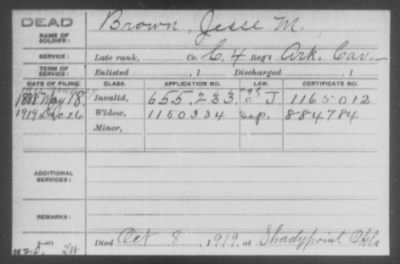 DEAD
Brown, Jesse M.
NAME OF SOLDIER:
SERVICE: Late rank, Co. C, 4 Reg't Ark. Cav.
TERM OF SERVICE: Enlisted , 1 Discharged , 1
DATE OF FILING. CLASS. APPLICATION NO. LAW. CERTIFICATE NO.
1888 May 18 Invalid, 655.233 J 1165012
1919 Dec 26 Widow, 1150334 884784
Minor,
ADDITIONAL SERVICES:
REMARKS:
Died Oct 8, 1919, at Shadypoint Okla